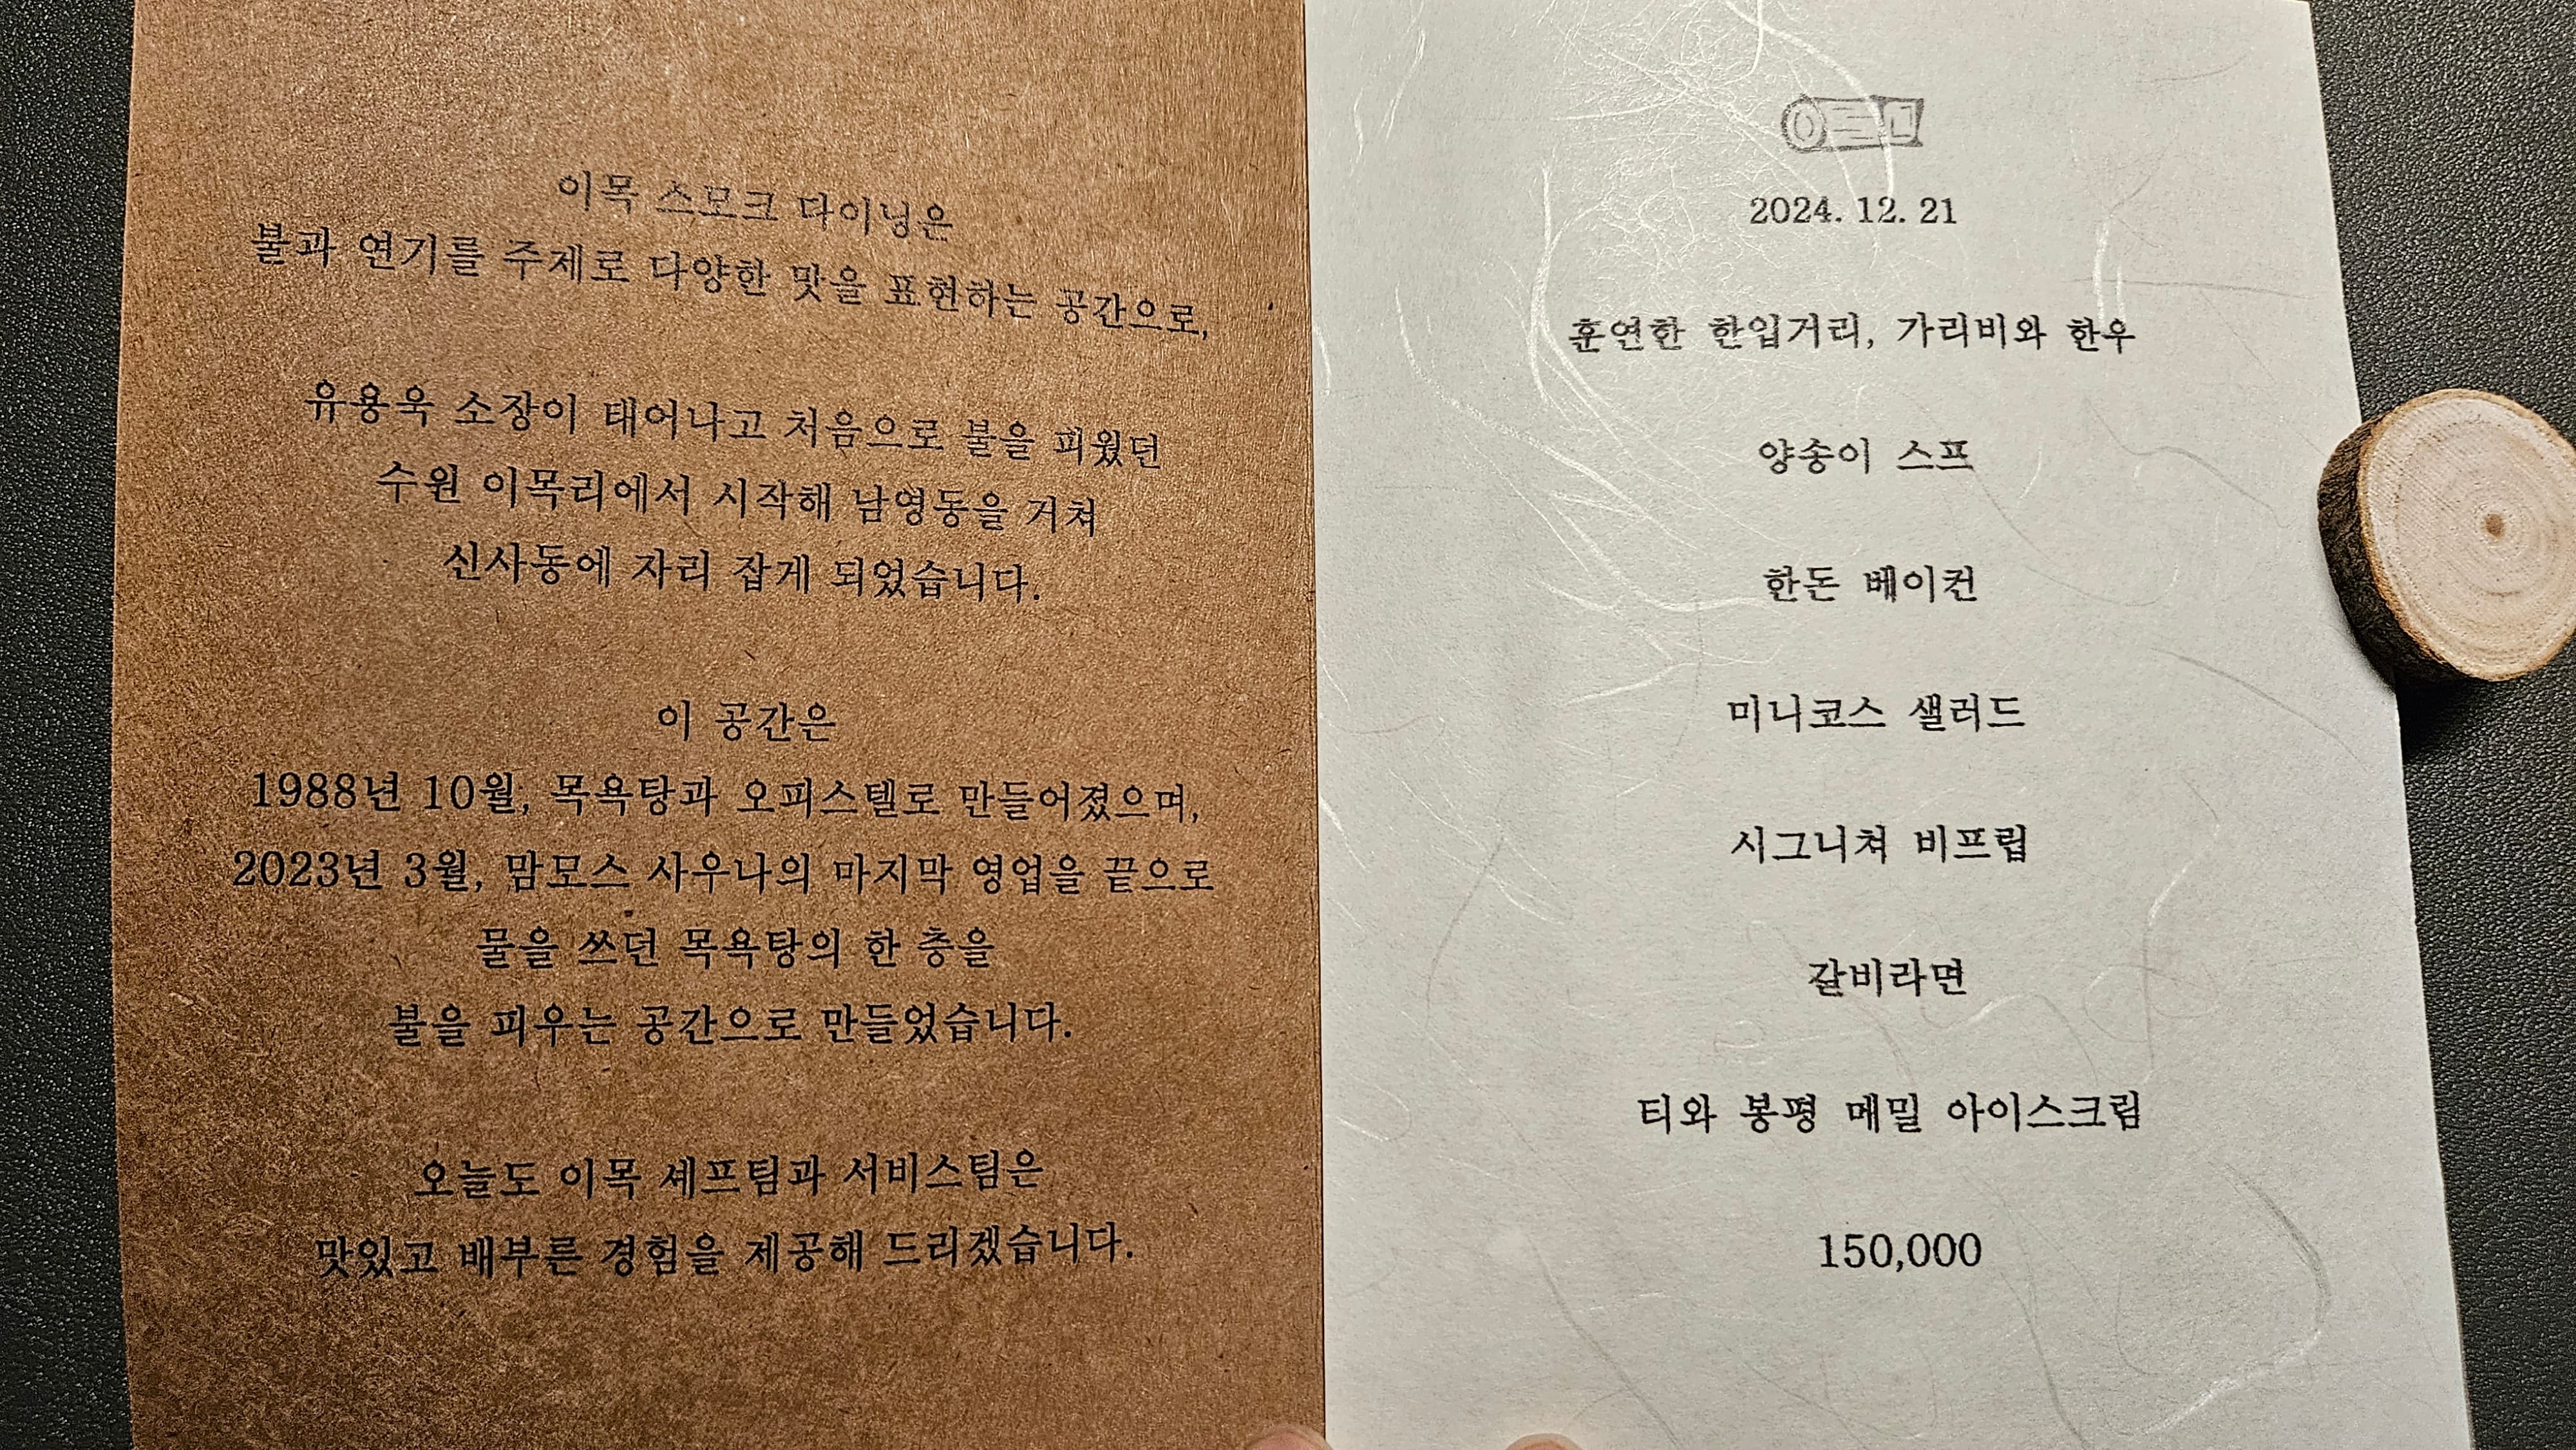 이목 스모크 다이닝은
불과 연기를 주제로 다양한 맛을 표현하는 공간으로,
유용욱 소장이 태어나고 처음으로 불을 피웠던
수원 이목리에서 시작해 남영동을 거쳐
신사동에 자리 잡게 되었습니다.
이 공간은
1988년 10월, 목욕탕과 오피스텔로 만들어졌으며,
2023년 3월, 맘모스 사우나의 마지막 영업을 끝으로
물을 쓰던 목욕탕의 한 층을
불을 피우는 공간으로 만들었습니다.
오늘도 이목 셰프팀과 서비스팀은
맛있고 배부른 경험을 제공해 드리겠습니다.
2024. 12. 21
훈연한 한입거리, 가리비와 한우
양송이 스프
한돈 베이컨
미니코스 샐러드
시그니쳐 비프립
갈비라면
티와 봉평 메밀 아이스크림
150,000